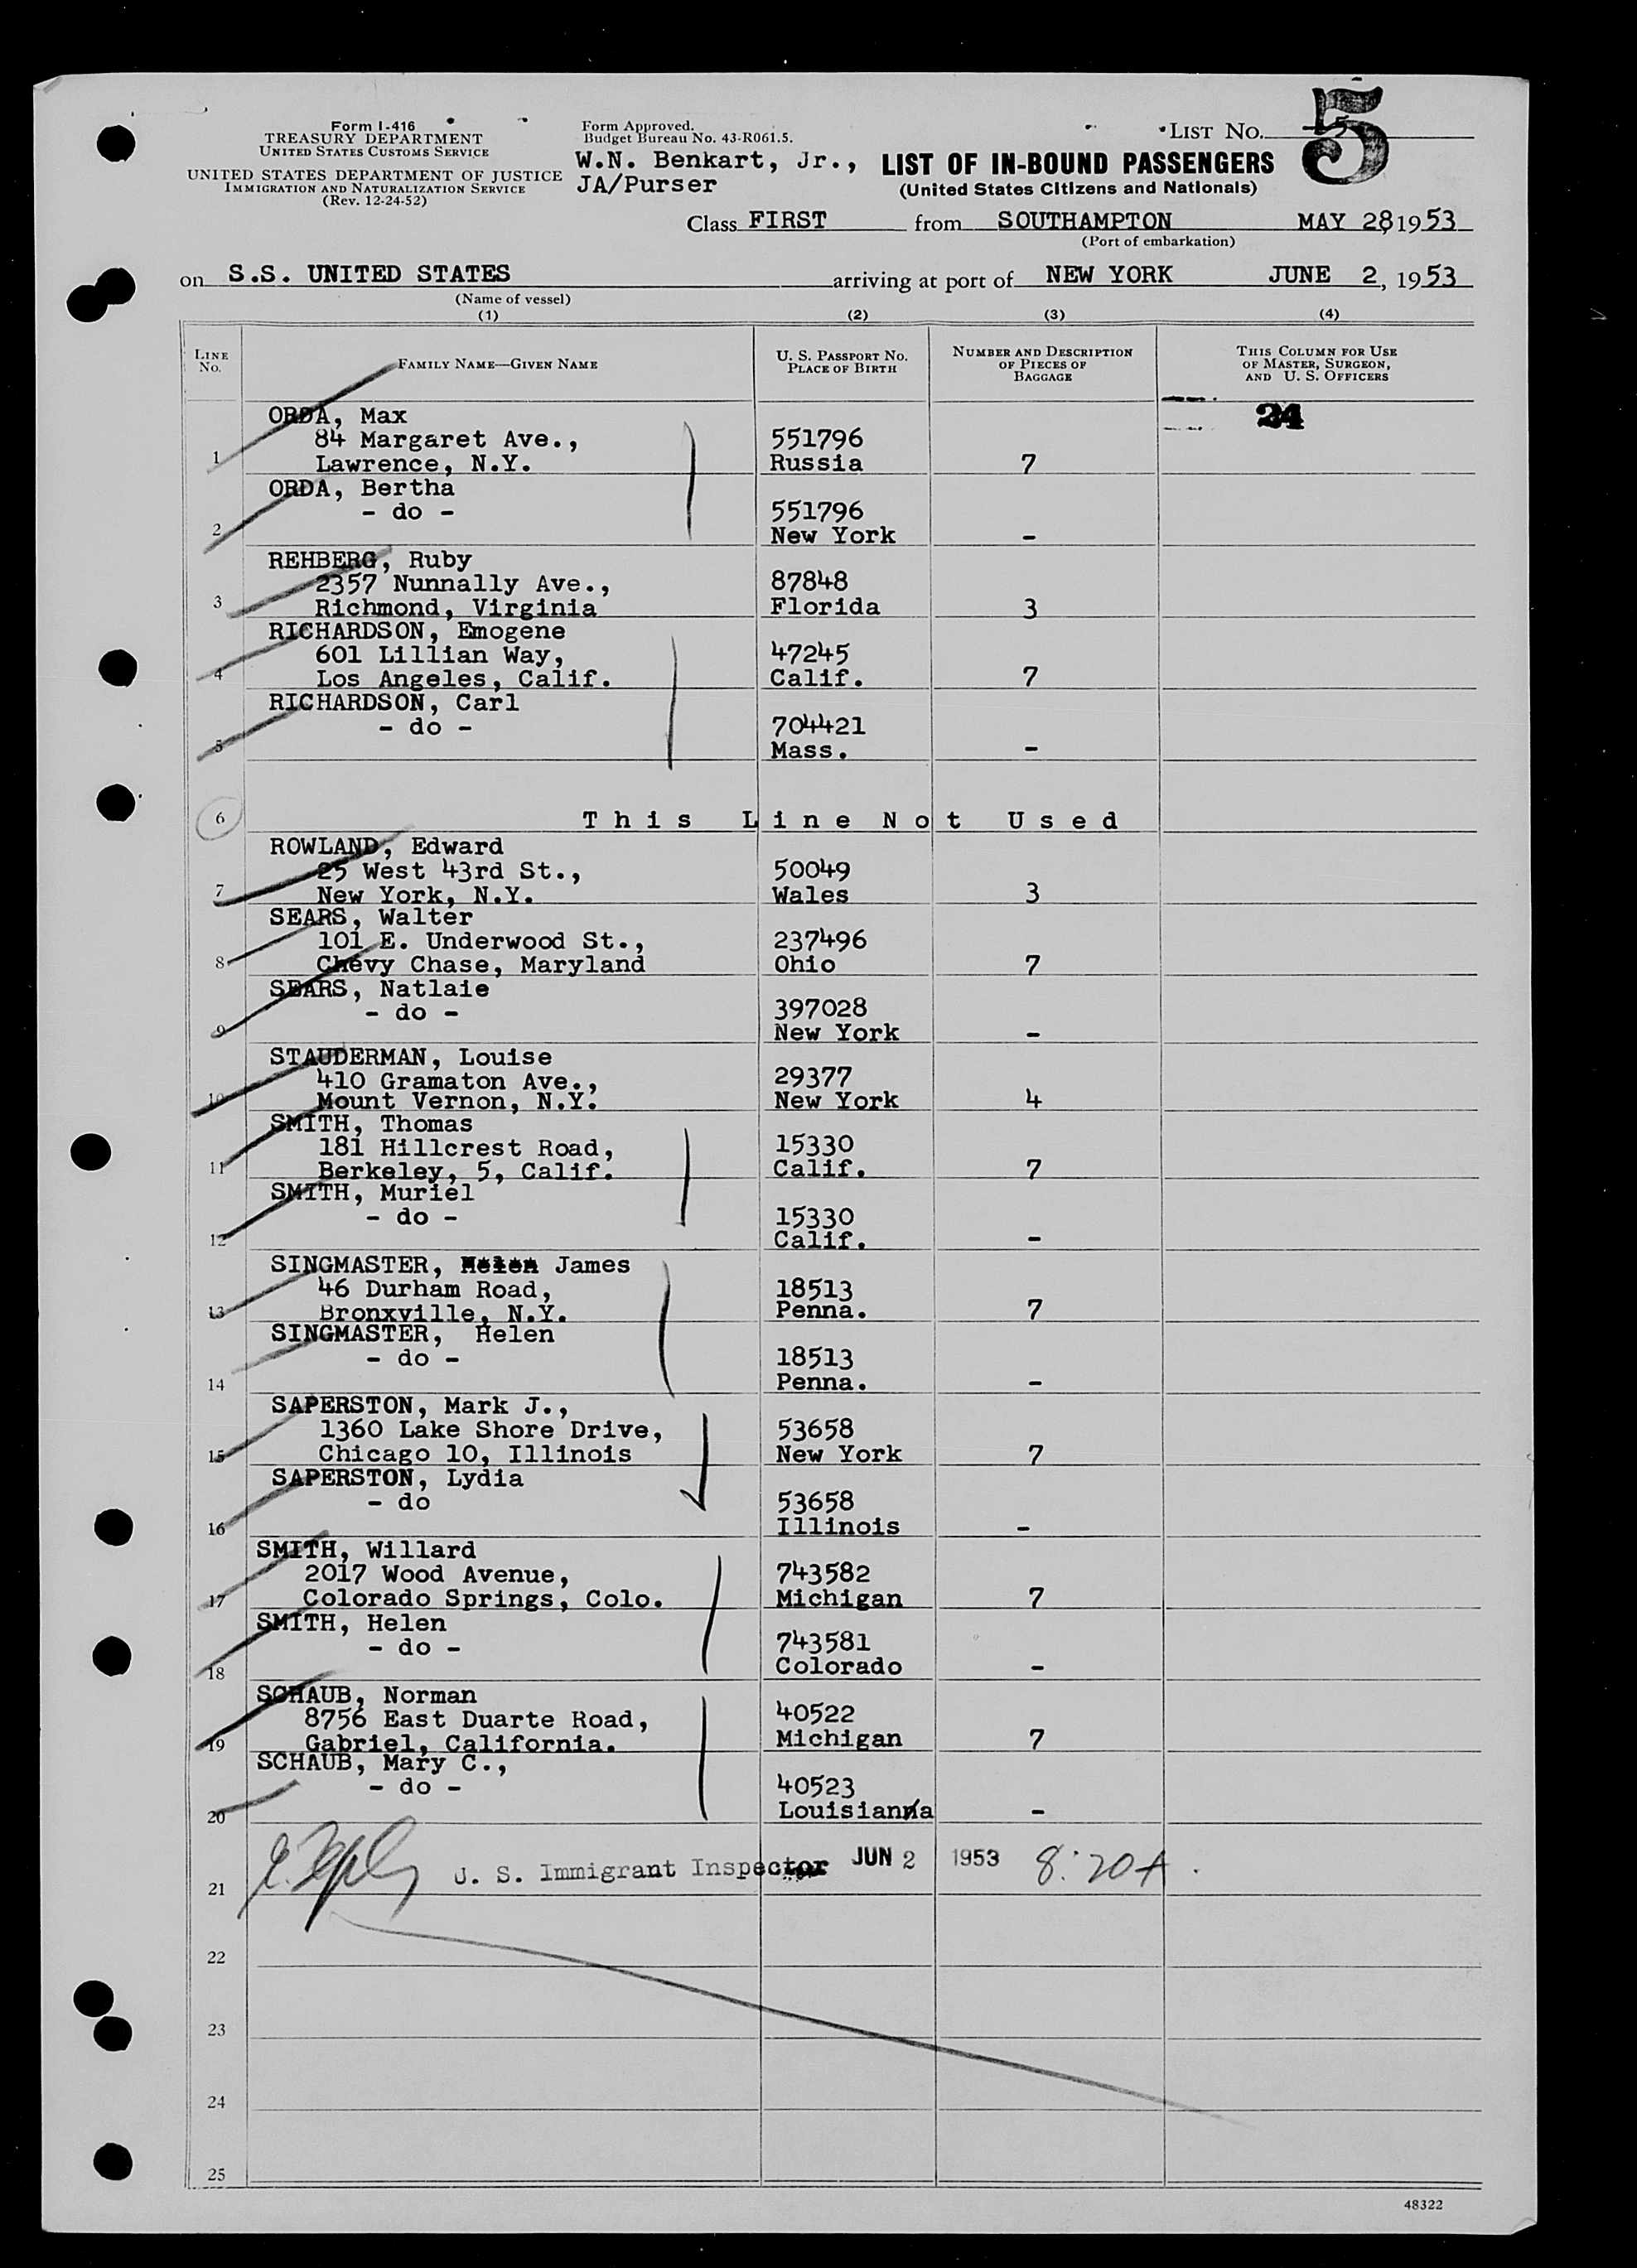 Form I-416
TREASURY DEPARTMENT
UNITED STATES CUSTOMS SERVICE
UNITED STATES DEPARTMENT OF JUSTICE
IMMIGRATION AND NATURALIZATION SERVICE
(Rev. 12-24-52)
Form Approved.
Budget Bureau No. 43-R061.5.
W.N. Benkart, Jr.,
JA/Purser
LIST NO. 5
LIST OF IN-BOUND PASSENGERS
(United States Citizens and Nationals)
Class FIRST from SOUTHAMPTON MAY 28, 1953
(Port of embarkation)
on S.S. UNITED STATES arriving at port of NEW YORK JUNE 2, 1953
(Name of vessel)
(1) (2) (3) (4)
LINE NO.
FAMILY NAME—GIVEN NAME
U. S. PASSPORT NO.
PLACE OF BIRTH
NUMBER AND DESCRIPTION
OF PIECES OF
BAGGAGE
THIS COLUMN FOR USE
OF MASTER, SURGEON,
AND U. S. OFFICERS
24
ORDA, Max
84 Margaret Ave., 551796
1 Lawrence, N.Y. Russia 7
ORDA, Bertha
- do - 551796
2 New York -
REHBERG, Ruby
2357 Nunnally Ave., 87848
3 Richmond, Virginia Florida 3
RICHARDSON, Emogene
601 Lillian Way, 47245
4 Los Angeles, Calif. Calif. 7
RICHARDSON, Carl
- do - 704421
5 Mass. -
6 This Line Not Used
ROWLAND, Edward
25 West 43rd St., 50049
7 New York, N.Y. Wales 3
SEARS, Walter
101 E. Underwood St., 237496
8 Chevy Chase, Maryland Ohio 7
SEARS, Natlaie
- do - 397028
9 New York -
STAUDERMAN, Louise
410 Gramaton Ave., 29377
10 Mount Vernon, N.Y. New York 4
SMITH, Thomas
181 Hillcrest Road, 15330
11 Berkeley, 5, Calif. Calif. 7
SMITH, Muriel
- do - 15330
12 Calif. -
SINGMASTER, Helen James
46 Durham Road, 18513
13 Bronxville, N.Y. Penna. 7
SINGMASTER, Helen
- do - 18513
14 Penna. -
SAPERSTON, Mark J.,
1360 Lake Shore Drive, 53658
15 Chicago 10, Illinois New York 7
SAPERSTON, Lydia
- do 53658
16 Illinois -
SMITH, Willard
2017 Wood Avenue, 743582
17 Colorado Springs, Colo. Michigan 7
SMITH, Helen
- do - 743581
18 Colorado -
SCHAUB, Norman
8756 East Duarte Road, 40522
19 Gabriel, California. Michigan 7
SCHAUB, Mary C.,
- do - 40523
20 Louisianna -
21 U. S. Immigrant Inspector JUN 2 1953 8:20A.
22
23
24
25
48322